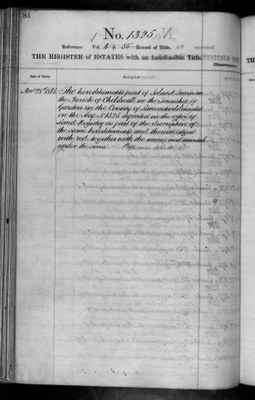 84
No. 1325
Reference Vol. Record of Title.
THE REGISTER of ESTATES with an Indefeasible Title.
Date of Entry
Description
The hereditaments part of Island Farm in
the Parish of Childwall in the Township of
Garston in the County of Lancaster delineated
on the Map No 1325 deposited in the office of
Land Registry as part of the description of
the same hereditaments and thereon edged
with red together with the mines and minerals
under the same